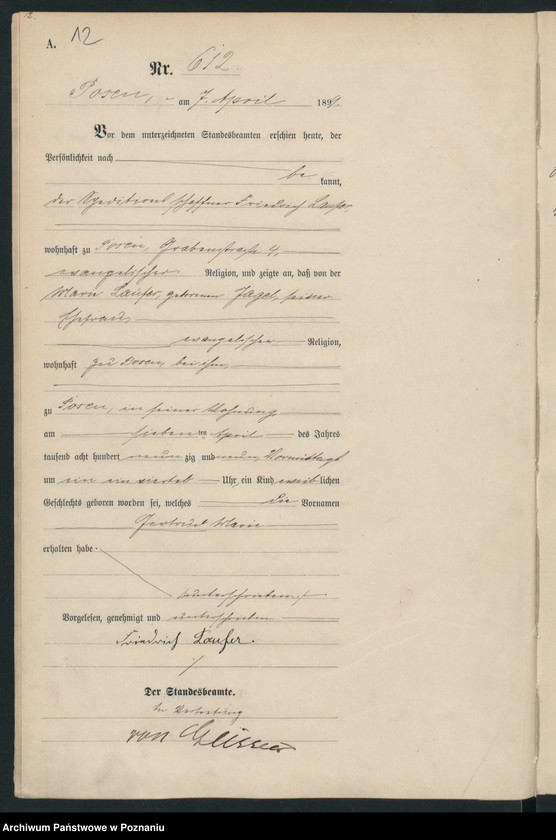 12.
A. 12
Nr. 612.
Posen, am 7. April 1899.
Vor dem unterzeichneten Standesbeamten erschien heute, der
Persönlichkeit nach
be
kannt,
der Speditionsschaffner Friedrich Laufer,
wohnhaft zu Posen, Grabenstraße 4,
evangelischer Religion, und zeigte an, daß von der
Marie Laufer, geborenen Jagel, seiner
Ehefrau,
evangelischer Religion,
wohnhaft zu Posen bei ihm,
zu Posen, in seiner Wohnung,
am sieben ten April des Jahres
tausend acht hundert neun zig und neun Vormittags
um ein ein viertel Uhr, ein Kind weib lichen
Geschlechts geboren worden sei, welches die Vornamen
Gertrud Marie
erhalten habe.
Vorgelesen, genehmigt und unterschrieben
Friedrich Laufer.
Der Standesbeamte.
In Vertretung
von
Archiwum Państwowe w Poznaniu